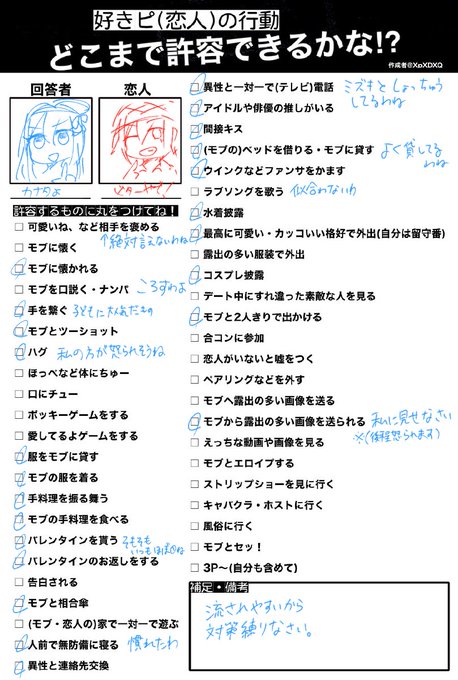 好きピ(恋人)の行動
どこまで許容できるかな!?
作成者@XpXDXQ
回答者
恋人
カナタよ
許容するものに丸をつけてね!
□ 可愛いね、など相手を褒める
↑絶対言えないわね
□ モブに懐く
□ モブに懐かれる
□ モブを口説く・ナンパ ころすわよ
□ 手を繋ぐ 子どもに大人気だもの
□ モブとツーショット
□ ハグ 私の方が怒られそうね
□ ほっぺなど体にちゅー
□ 口にチュー
□ ポッキーゲームをする
□ 愛してるよゲームをする
□ 服をモブに貸す
□ モブの服を着る
□ 手料理を振る舞う
□ モブの手料理を食べる
□ バレンタインを貰う そもそもいつもほぼ0ね
□ バレンタインのお返しをする
□ 告白される
□ モブと相合傘
□ (モブ・恋人の)家で一対一で遊ぶ
□ 人前で無防備に寝る 慣れたわ
□ 異性と連絡先交換
□ 異性と一対一で(テレビ)電話 ミズキとしょっちゅうしてるわね
□ アイドルや俳優の推しがいる
□ 間接キス
□ (モブの)ベッドを借りる・モブに貸す よく貸してるわね
□ ウインクなどファンサをかます
□ ラブソングを歌う 似合わないわ
□ 水着披露
□ 最高に可愛い・カッコいい格好で外出(自分は留守番)
□ 露出の多い服装で外出
□ コスプレ披露
□ デート中にすれ違った素敵な人を見る
□ モブと2人きりで出かける
□ 合コンに参加
□ 恋人がいないと嘘をつく
□ ペアリングなどを外す
□ モブへ露出の多い画像を送る
□ モブから露出の多い画像を送られる 私に見せなさい
※(後程怒られます)
□ えっちな動画や画像を見る
□ モブとエロイプする
□ ストリップショーを見に行く
□ キャバクラ・ホストに行く
□ 風俗に行く
□ モブとセッ!
□ 3P〜(自分も含めて)
補足・備考
流されやすいから
対策練りなさい。